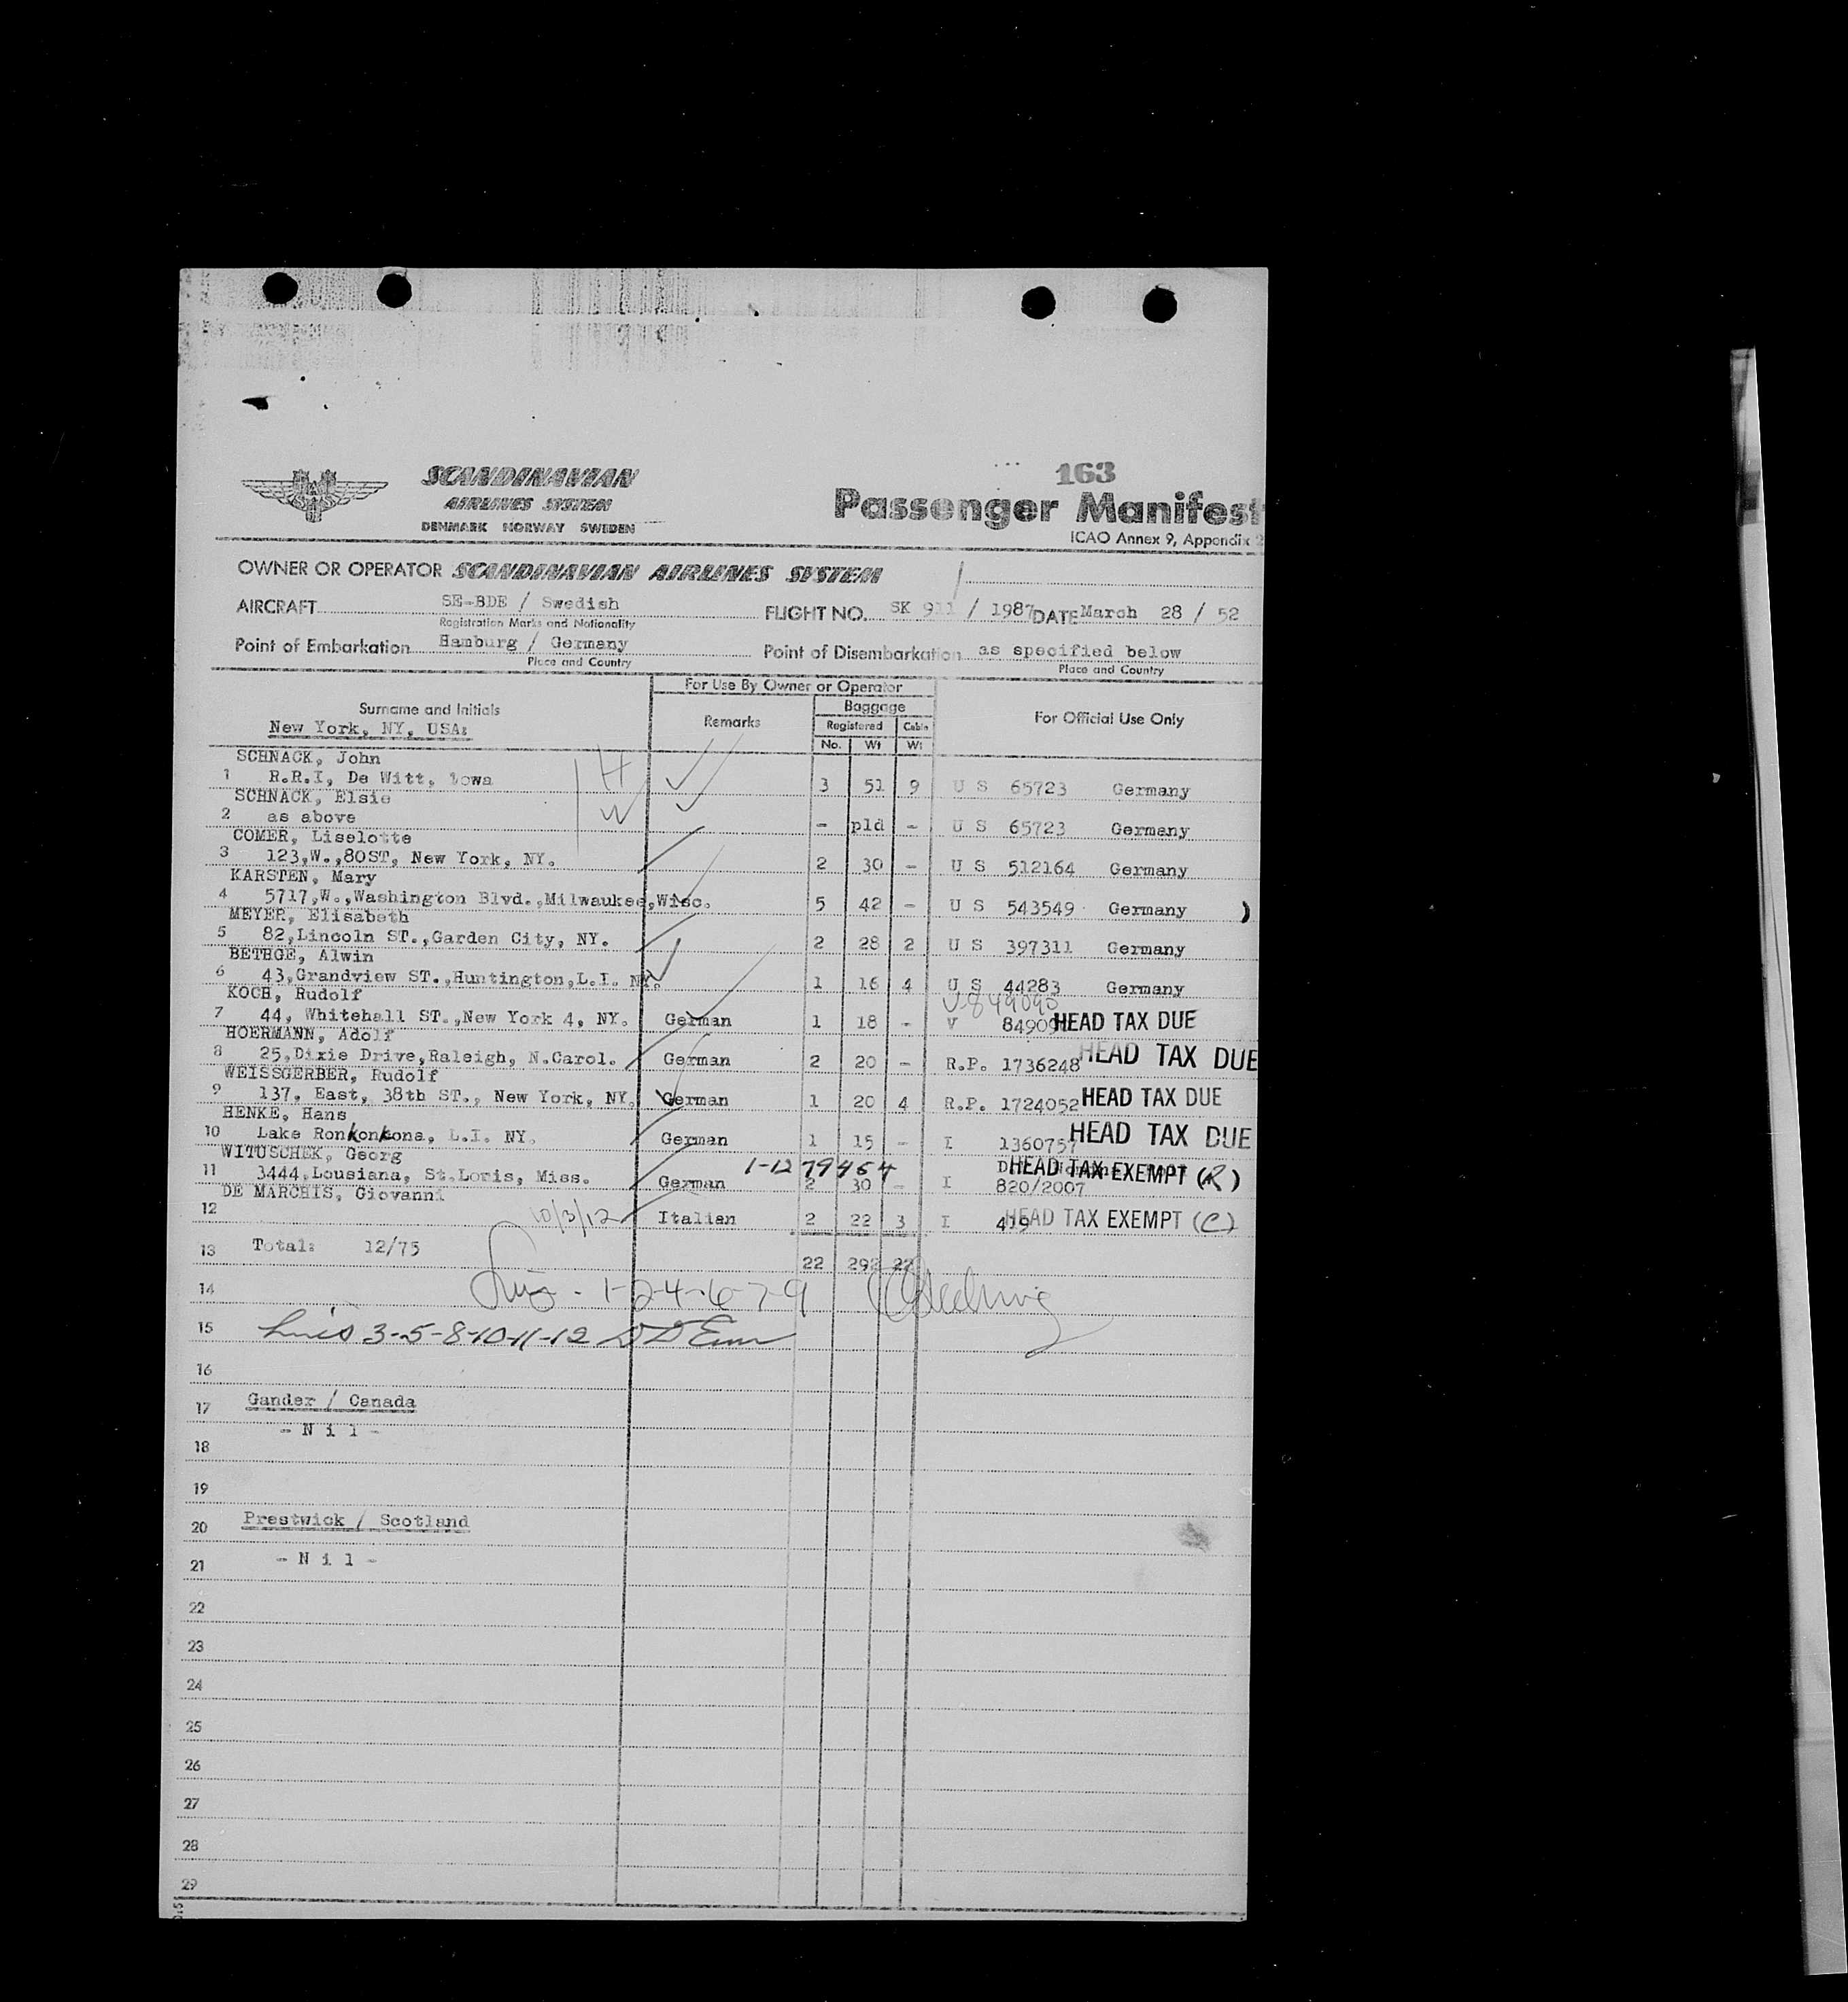 163
SCANDINAVIAN
AIRLINES SYSTEM
DENMARK NORWAY SWEDEN
Passenger Manifest
ICAO Annex 9, Appendix 2
OWNER OR OPERATOR SCANDINAVIAN AIRLINES SYSTEM
AIRCRAFT SE-BDE / Swedish FLIGHT NO. SK 911 / 1987 DATE March 28 / 52
Registration Marks and Nationality
Point of Embarkation Hamburg / Germany Point of Disembarkation as specified below
Place and Country Place and Country
For Use By Owner or Operator
Surname and Initials Remarks Baggage For Official Use Only
New York, NY, USA: Registered Cabin
No. Wt Wt
SCHNACK, John H
1 R.R.I, De Witt, iowa 3 51 9 U S 65723 Germany
SCHNACK, Elsie W
2 as above - pld - U S 65723 Germany
COMER, Liselotte
3 123,W.,80ST, New York, NY. 2 30 - U S 512164 Germany
KARSTEN, Mary
4 5717,W.,Washington Blvd.,Milwaukee,Wisc. 5 42 - U S 543549 Germany )
MEYER, Elisabeth
5 82,Lincoln ST.,Garden City, NY. 2 28 2 U S 397311 Germany
BETHGE, Alwin
6 43,Grandview ST.,Huntington,L.I. NY. 1 16 4 U S 44283 Germany
KOCH, Rudolf V-849090
7 44, Whitehall ST.,New York 4, NY. German 1 18 - V 84909 HEAD TAX DUE
HOERMANN, Adolf
8 25,Dixie Drive,Raleigh, N.Carol. German 2 20 - R.P. 1736248 HEAD TAX DUE
WEISSGERBER, Rudolf
9 137, East, 38th ST., New York, NY. German 1 20 4 R.P. 1724052 HEAD TAX DUE
HENKE, Hans
10 Lake Ronkonkona, L.I. NY. German 1 15 - I 1360757 HEAD TAX DUE
WITUSCHEK, Georg 1-1279464 HEAD TAX EXEMPT (R)
11 3444,Lousiana, St.Loris, Miss. German 2 30 - I 820/2007
DE MARCHIS, Giovanni
12 10/3/12 Italian 2 22 3 I 419 HEAD TAX EXEMPT (C)
13 Total: 12/75 22 292 22
14 1-2-4-6-7-9
15 3-5-8-10-11-12
16
17 Gander / Canada
- N i l -
18
19
20 Prestwick / Scotland
21 - N i l -
22
23
24
25
26
27
28
29